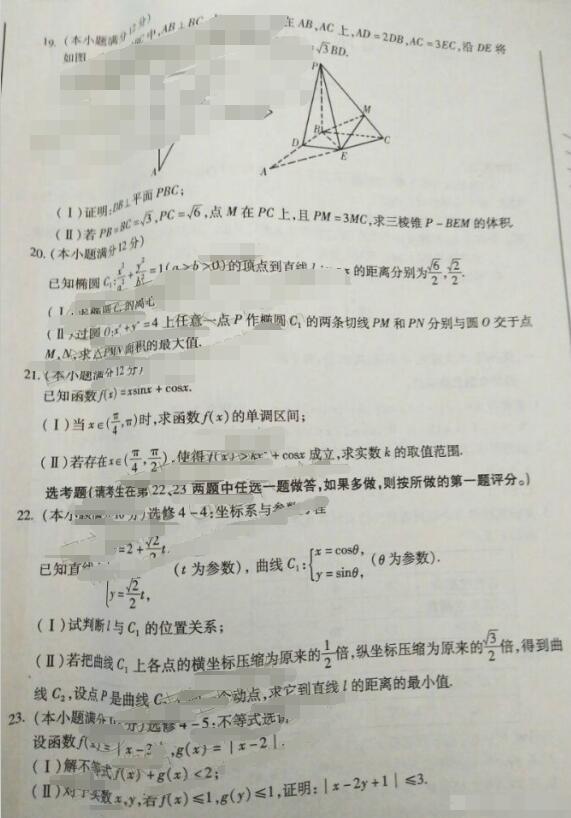 19. (本小题满分12分)
如图 中,AB⊥BC, 在 AB,AC 上,AD=2DB,AC=3EC,沿 DE 将
=√3BD.
P
M
B
D
C
E
A
A
(Ⅰ)证明:DB⊥平面 PBC;
(Ⅱ)若 PB=BC=√3,PC=√6,点 M 在 PC 上,且 PM=3MC,求三棱锥 P-BEM 的体积.
20. (本小题满分12分)
已知椭圆 C₁:x²/a²+y²/b²=1(a>b>0)的顶点到直线 的距离分别为√6/2,√2/2.
(Ⅰ)求椭圆 C₁的离心
(Ⅱ)过圆 O:x²+y²=4 上任意一点 P 作椭圆 C₁ 的两条切线 PM 和 PN 分别与圆 O 交于点
M,N,求△PMN面积的最大值.
21. (本小题满分12分)
已知函数 f(x)=xsinx+cosx.
(Ⅰ)当 x∈(π/4,π)时,求函数 f(x)的单调区间;
(Ⅱ)若存在 x∈(π/4,π/2),使得 f(x)>kx²+cosx 成立,求实数 k 的取值范围.
选考题(请考生在第22、23 两题中任选一题做答,如果多做,则按所做的第一题评分。)
22. (本小题满分10分)选修 4-4:坐标系与参数方程
已知直线 =2+√2/2 t, y=√2/2 t, (t 为参数), 曲线 C₁:{x=cosθ, y=sinθ, (θ为参数).
(Ⅰ)试判断 l 与 C₁ 的位置关系;
(Ⅱ)若把曲线 C₁ 上各点的横坐标压缩为原来的1/2倍,纵坐标压缩为原来的√3/2倍,得到曲
线 C₂,设点 P 是曲线 C 个动点,求它到直线 l 的距离的最小值.
23. (本小题满分10分)选修 4-5:不等式选
设函数 f(x)=|x-3|,g(x)=|x-2|.
(Ⅰ)解不等式 f(x)+g(x)<2;
(Ⅱ)对于实数 x,y,若 f(x)≤1,g(y)≤1,证明:|x-2y+1|≤3.